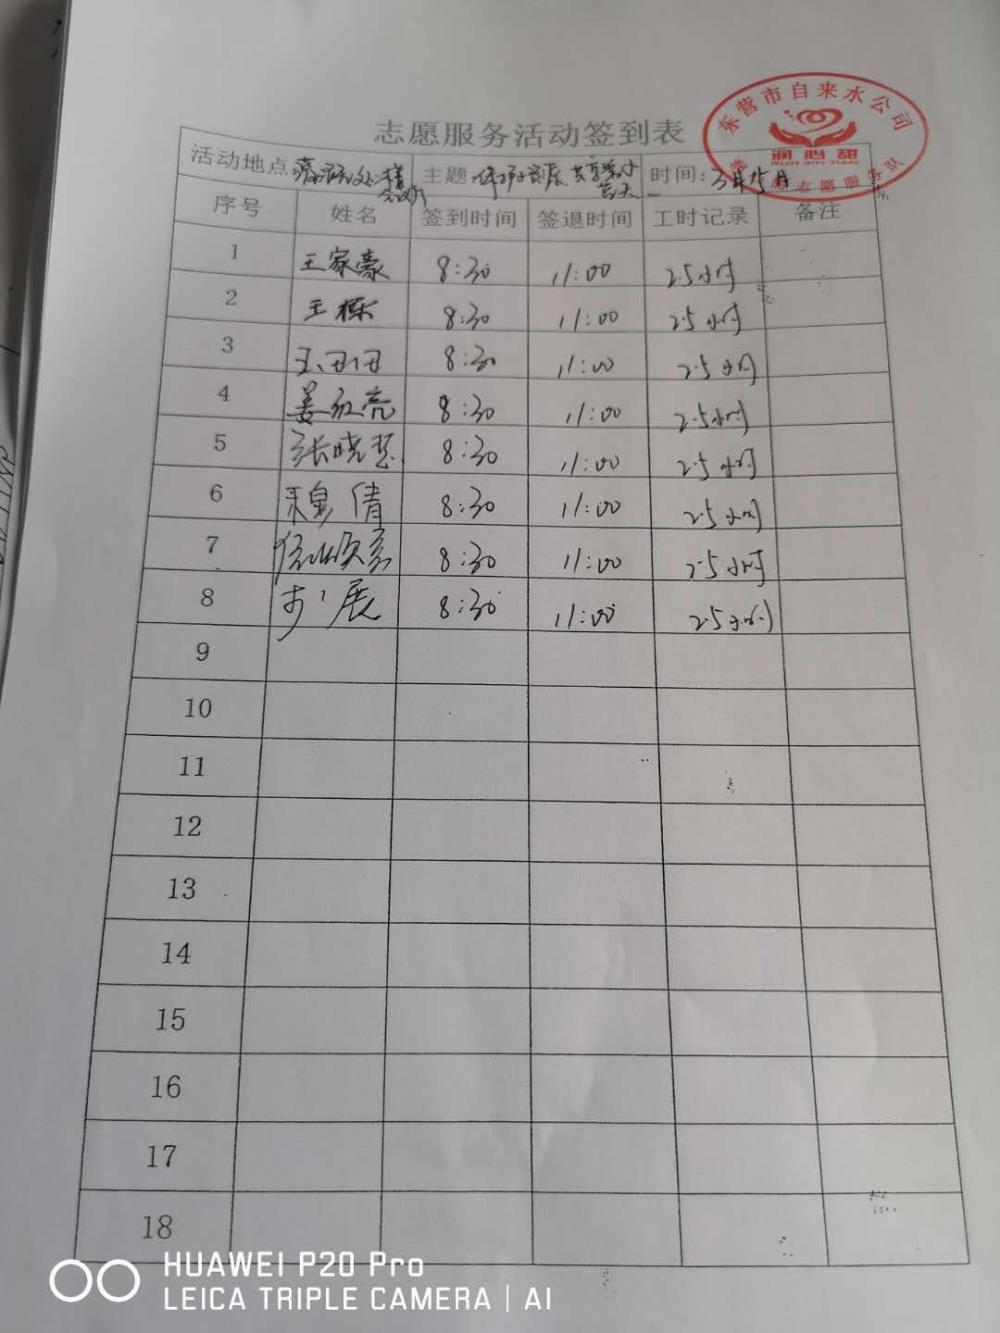 东营市自来水公司
润心甜
RUN XIN TIAN
志愿服务活动签到表
活动地点: 主题: 时间: 3月15日
序号 姓名 签到时间 签退时间 工时记录 备注
1 王家豪 8:30 11:00 2.5小时
2 王栋 8:30 11:00 2.5小时
3 王丑丑 8:30 11:00 2.5小时
4 姜红亮 8:30 11:00 2.5小时
5 张晓慧 8:30 11:00 2.5小时
6 穆倩 8:30 11:00 2.5小时
7 8:30 11:00 2.5小时
8 展 8:30 11:00 2.5小时
9
10
11
12
13
14
15
16
17
18
HUAWEI P20 Pro
LEICA TRIPLE CAMERA | AI